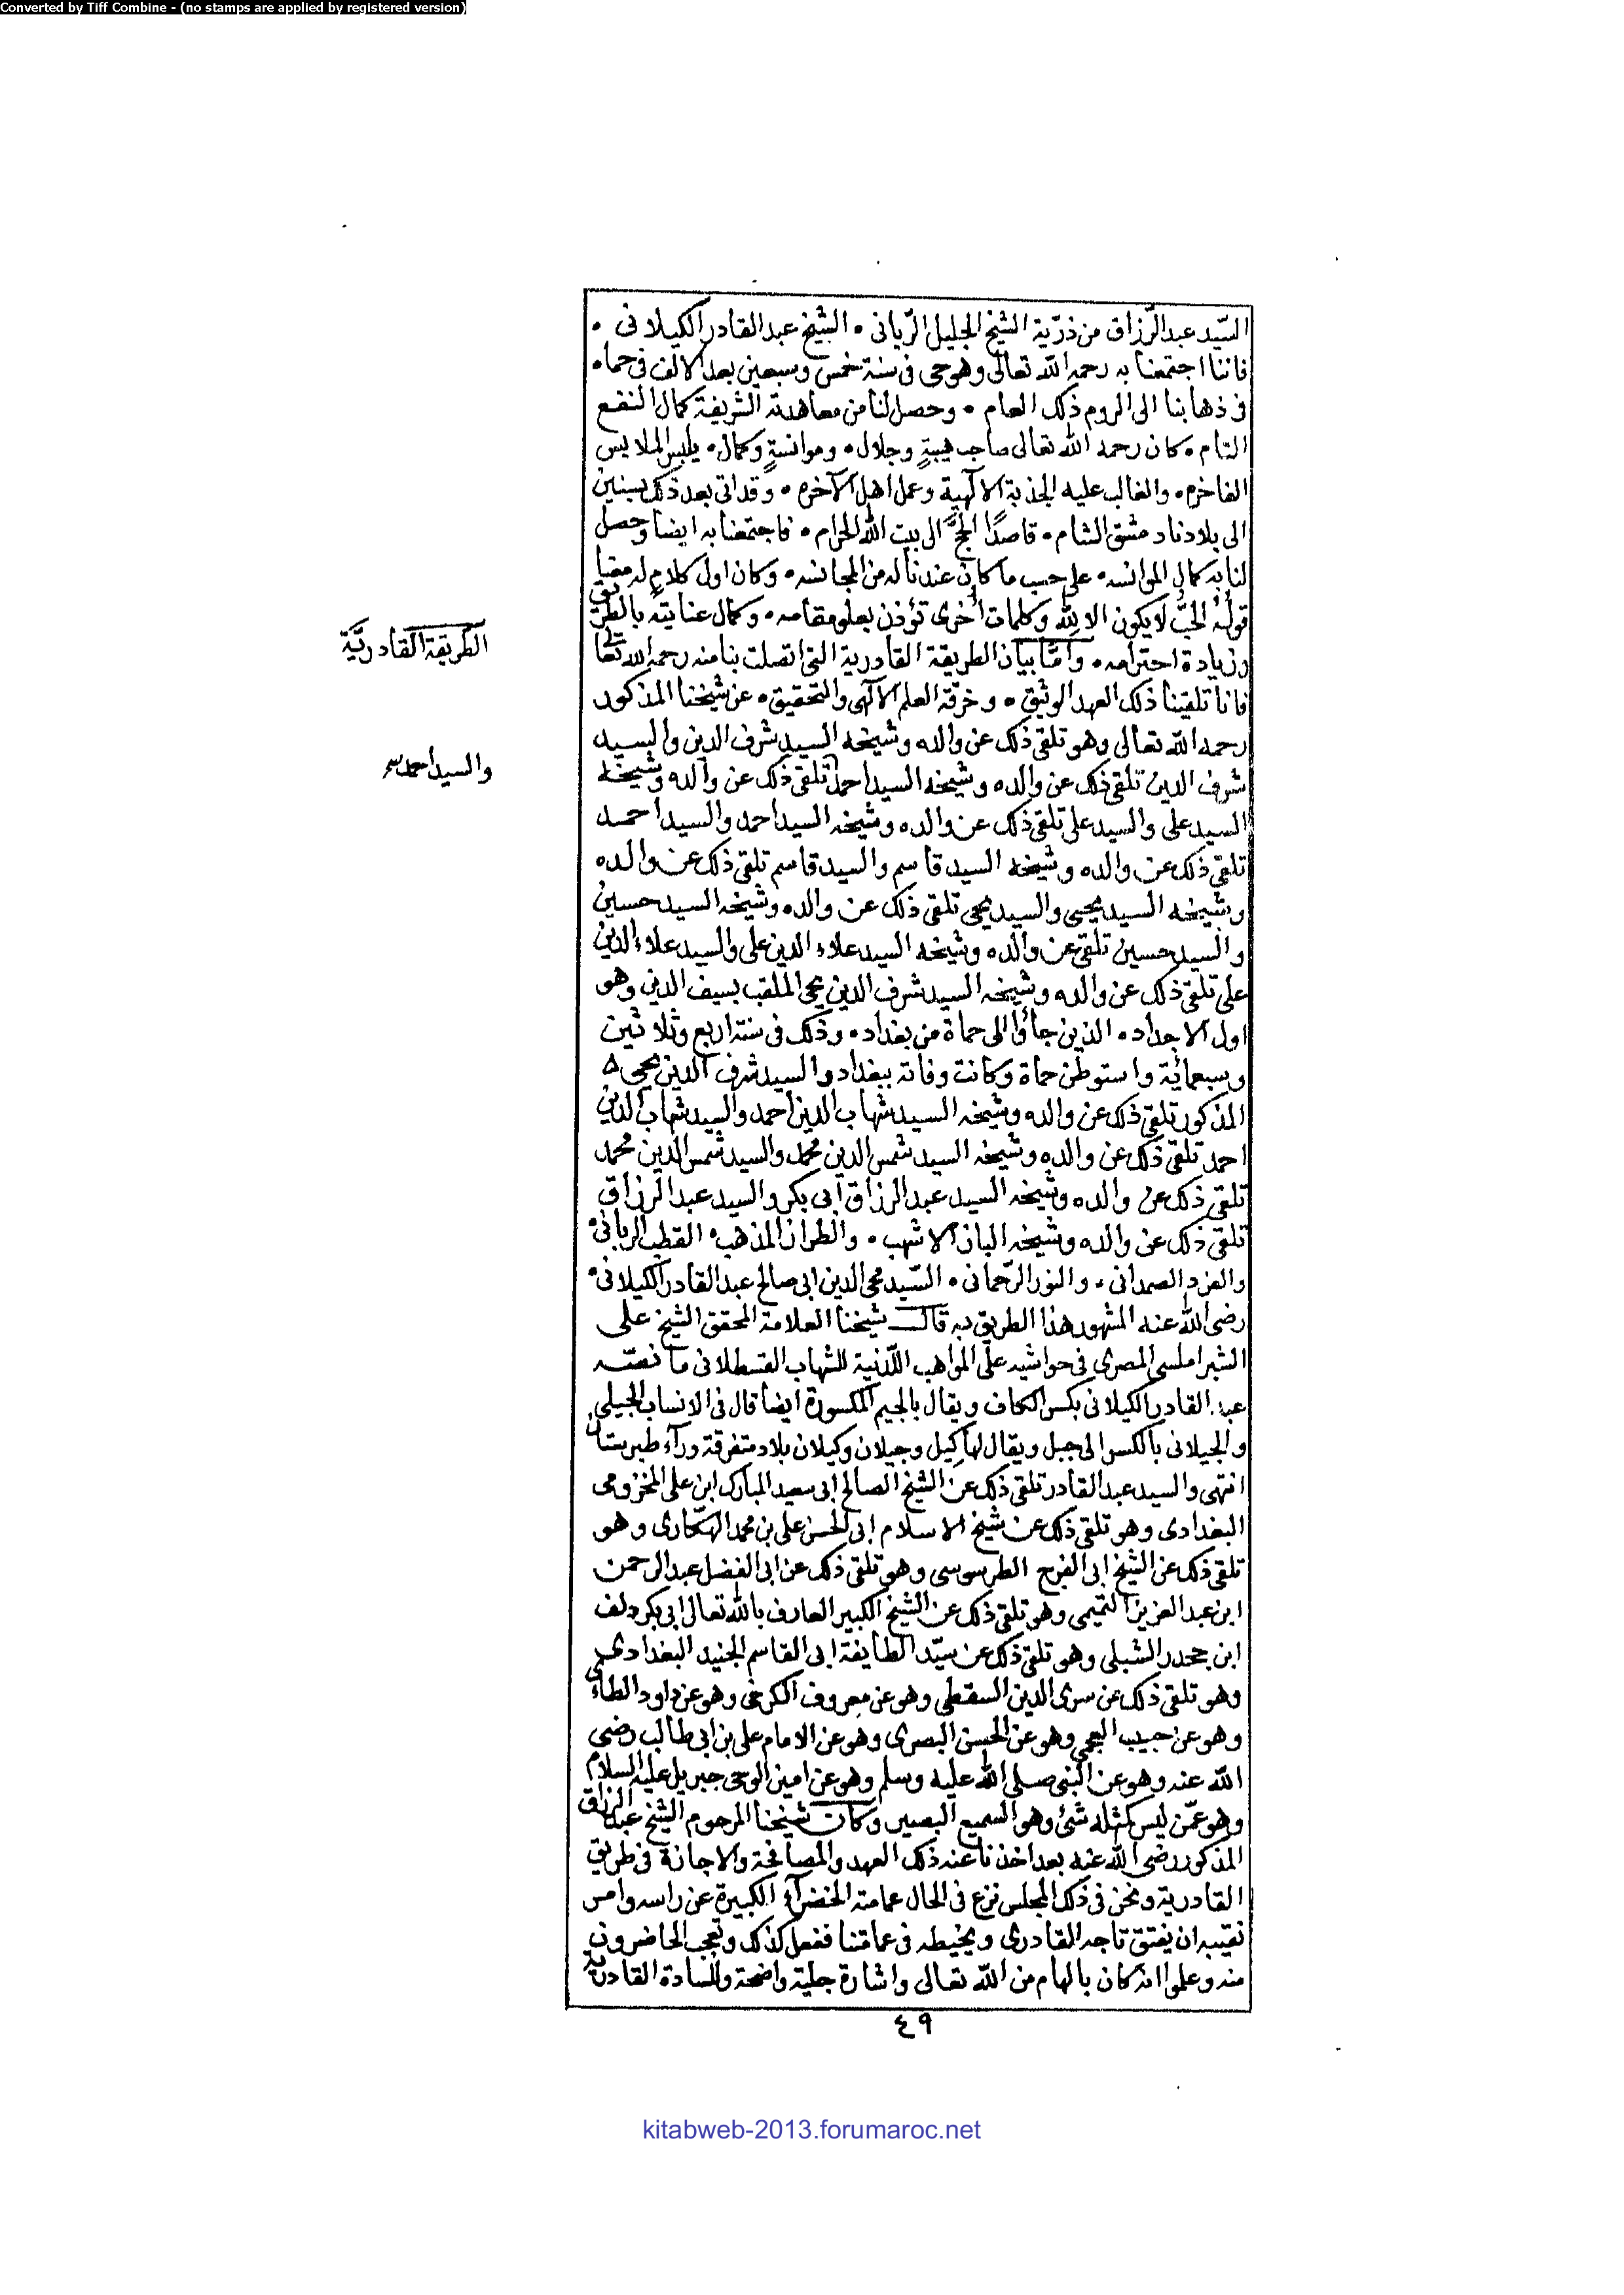 Converted by Tiff Combine - (no stamps are applied by registered version)
السّيد عبد الرّزاق من ذرّية الشيخ الجليل الرّباني • الشيخ عبد القادر الكيلاني •
فاننا اجتمعنا به رحمه الله تعالى وهو حي في سنة خمس وسبعين بعد الالف في حماه
في ذهابنا الى الروم ذلك العام • وحصل لنا من معاهدته الشريفة كمال النفع
التام • كان رحمه الله تعالى صاحب هيبةٍ وجلال • وموانسةٍ وكمال • يلبس الملابس
الفاخره • والغالب عليه الجذبة الالهية وعمل اهل الآخره • وقد اتى بعد ذلك بسنين
الى بلادنا دمشق الشام • قاصدًا الحجَّ الى بيت الله الحرام • فاجتمعنا به ايضا وحصل
لنا به كمال الموانسه • على حسب ما كان عندنا له من المجانسه • وكان اول كلامٍ له معنا
قولُهُ الحبُّ لا يكون الا لله وكلمات اُخرى تؤذن بعلو مقامه • وكمال عنايته بالطريق
وزيادة احترامه • وامّا بيان الطريقة القادرية التي اتصلت بنا منه رحمه الله تعالى
فانا تلقينا ذلك العهد الوثيق • وخرقة العلم الالهي والتحقيق • عن شيخنا المذكور
رحمه الله تعالى وهو تلقى ذلك عن والده وشيخه السيد شرف الدين والسيد
شرف الدين تلقى ذلك عن والده وشيخه السيد احمد تلقى ذلك عن والده وشيخه
السيد على والسيد على تلقى ذلك عن والده وشيخه السيد احمد والسيد احمد
تلقى ذلك عن والده وشيخه السيد قاسم والسيد قاسم تلقى ذلك عن والده
وشيخه السيد يحيى والسيد يحيى تلقى ذلك عن والده وشيخه السيد حسين
والسيد حسين تلقى عن والده وشيخه السيد علاء الدين على والسيد علاء الدين
على تلقى ذلك عن والده وشيخه السيد شرف الدين يحيى الملقب بسيف الدين وهو
اول الاجداد • الذين جاؤا الى حماة من بغداد • وذلك في سنة اربع وثلاثين
وسبعمائة واستوطن حماة وكانت وفاته ببغداد والسيد شرف الدين يحيى
المذكور تلقى ذلك عن والده وشيخه السيد شهاب الدين احمد والسيد شهاب الدين
احمد تلقى ذلك عن والده وشيخه السيد شمس الدين محمد والسيد شمس الدين محمد
تلقى ذلك عن والده وشيخه السيد عبد الرزاق ابى بكر والسيد عبد الرزاق
تلقى ذلك عن والده وشيخه الباز الاشهب • والطراز المذهب • القطب الرباني •
والفرد الصمداني • والنور الرّحماني • السّيد محي الدين ابى صالح عبد القادر الكيلاني •
رضى الله عنه المشهور هذا الطريق به قال شيخنا العلامة المحقق الشيخ على
الشبراملسى المصرى في حواشيه على المواهب اللّدنية للشهاب القسطلاني ما نصّه
عبد القادر الكيلاني بكسر الكاف ويقال بالجيم المكسورة ايضا قال في الانساب الجيلى
والجيلانى بالكسر الى جيل ويقال لها كيل وجيلان وكيلان بلاد متفرقة ورآء طبرستان
انتهى والسيد عبد القادر تلقى ذلك عن الشيخ الصالح ابى سعيد المبارك ابن على المخزومى
البغدادى وهو تلقى ذلك عن شيخ الاسلام ابى الحسن على بن محمد الهكّارى وهو
تلقى ذلك عن الشيخ ابى الفرج الطرسوسى وهو تلقى ذلك عن ابى الفضل عبد الرحمن
ابن عبد العزيز التميمى وهو تلقى ذلك عن الشيخ الكبير العارف بالله تعالى ابى بكر دلف
ابن جحدر الشبلى وهو تلقى ذلك عن سيّد الطايفة ابى القاسم الجنيد البغدادى
وهو تلقى ذلك عن سرى الدين السقطى وهو عن معروف الكرخى وهو عن داود الطائى
وهو عن حبيب العجمى وهو عن الحسن البصرى وهو عن الامام على بن ابى طالب رضى
الله عنه وهو عن النبى صلى الله عليه وسلم وهو عن امين الوحى جبريل عليه السلام
وهو عمّن ليس كمثله شئ وهو السميع البصير وكان شيخنا المرحوم الشيخ عبد الرزاق
المذكور رضى الله عنه بعد اخذنا عنه ذلك العهد والمصافحة والاجازة في طريق
القادرية ونحن في ذلك المجلس نزع في الحال عمامته الخضرآء الكبيرة عن راسه وامر
نقيبه ان يفتق تاجه القادرى ويخيطه في عمامتنا ففعل كذلك وتعجب الحاضرون
منه وعلموا انه كان بالهام من الله تعالى واشارة جلية واضحة وللسادة القادرية
الطريقة القادريّة
والسيد احمد
٤٩
kitabweb-2013.forumaroc.net